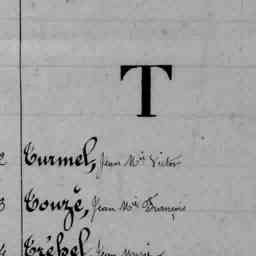 T
2 Turmel, Jean Mie Victor
3 Touzé, Jean Mie François
Trébel, Jean Marie